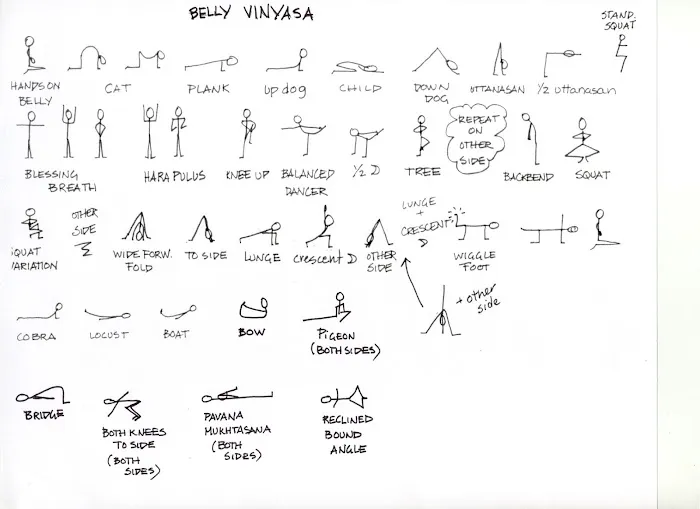 BELLY VINYASA
STAND.
SQUAT
HANDS ON
BELLY
CAT
PLANK
up dog
CHILD
DOWN
DOG
UTTANASAN
1/2 uttanasan
BLESSING
BREATH
HARA PULUS
KNEE UP
BALANCED
DANCER
1/2 D
TREE
REPEAT
ON
OTHER
SIDE
BACKBEND
SQUAT
SQUAT
VARIATION
OTHER
SIDE
WIDE FORW.
FOLD
TO SIDE
LUNGE
crescent D
OTHER
SIDE
LUNGE
+
CRESCENT
WIGGLE
FOOT
+ other
side
COBRA
LOCUST
BOAT
BOW
PIGEON
(BOTH SIDES)
BRIDGE
BOTH KNEES
TO SIDE
(BOTH
SIDES)
PAVANA
MUKHTASANA
(BOTH
SIDES)
RECLINED
BOUND
ANGLE